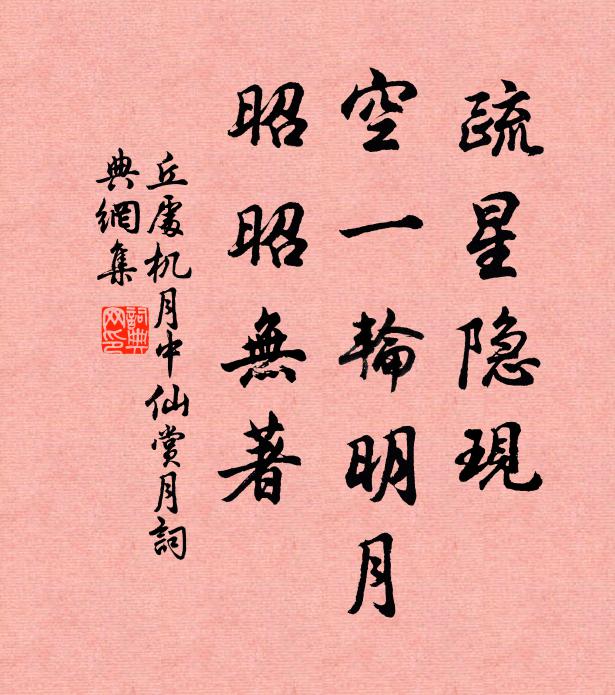 疏星隐現
空一輪明月
昭昭無著
丘處机月中仙赏月詞
典網集
詞典
网印